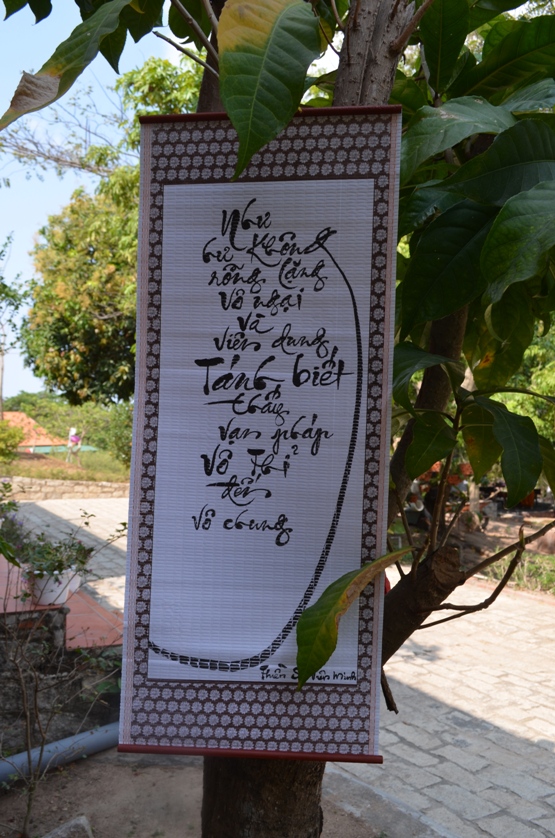 Như
hư không
rỗng lặng
vô ngại
và
viên dung
Tánh biết
thấy
vạn pháp
Vô Thỉ
đến
vô chung
Thiền Sư Viên Minh